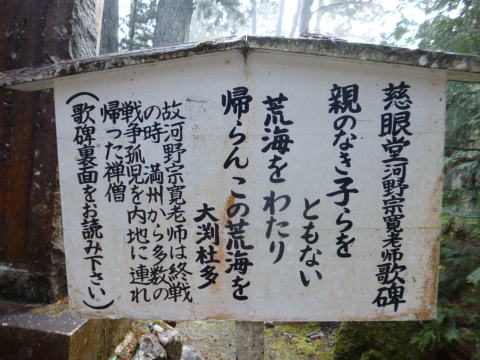 慈眼堂河野宗寛老師歌碑
親のなき子らを
ともない
荒海をわたり
帰らんこの荒海を
大渕杜多
故河野宗寛老師は終戦
の時 満州から多数の
戦争孤児を内地に連れ
帰った禅僧
（歌碑裏面をお読み下さい）